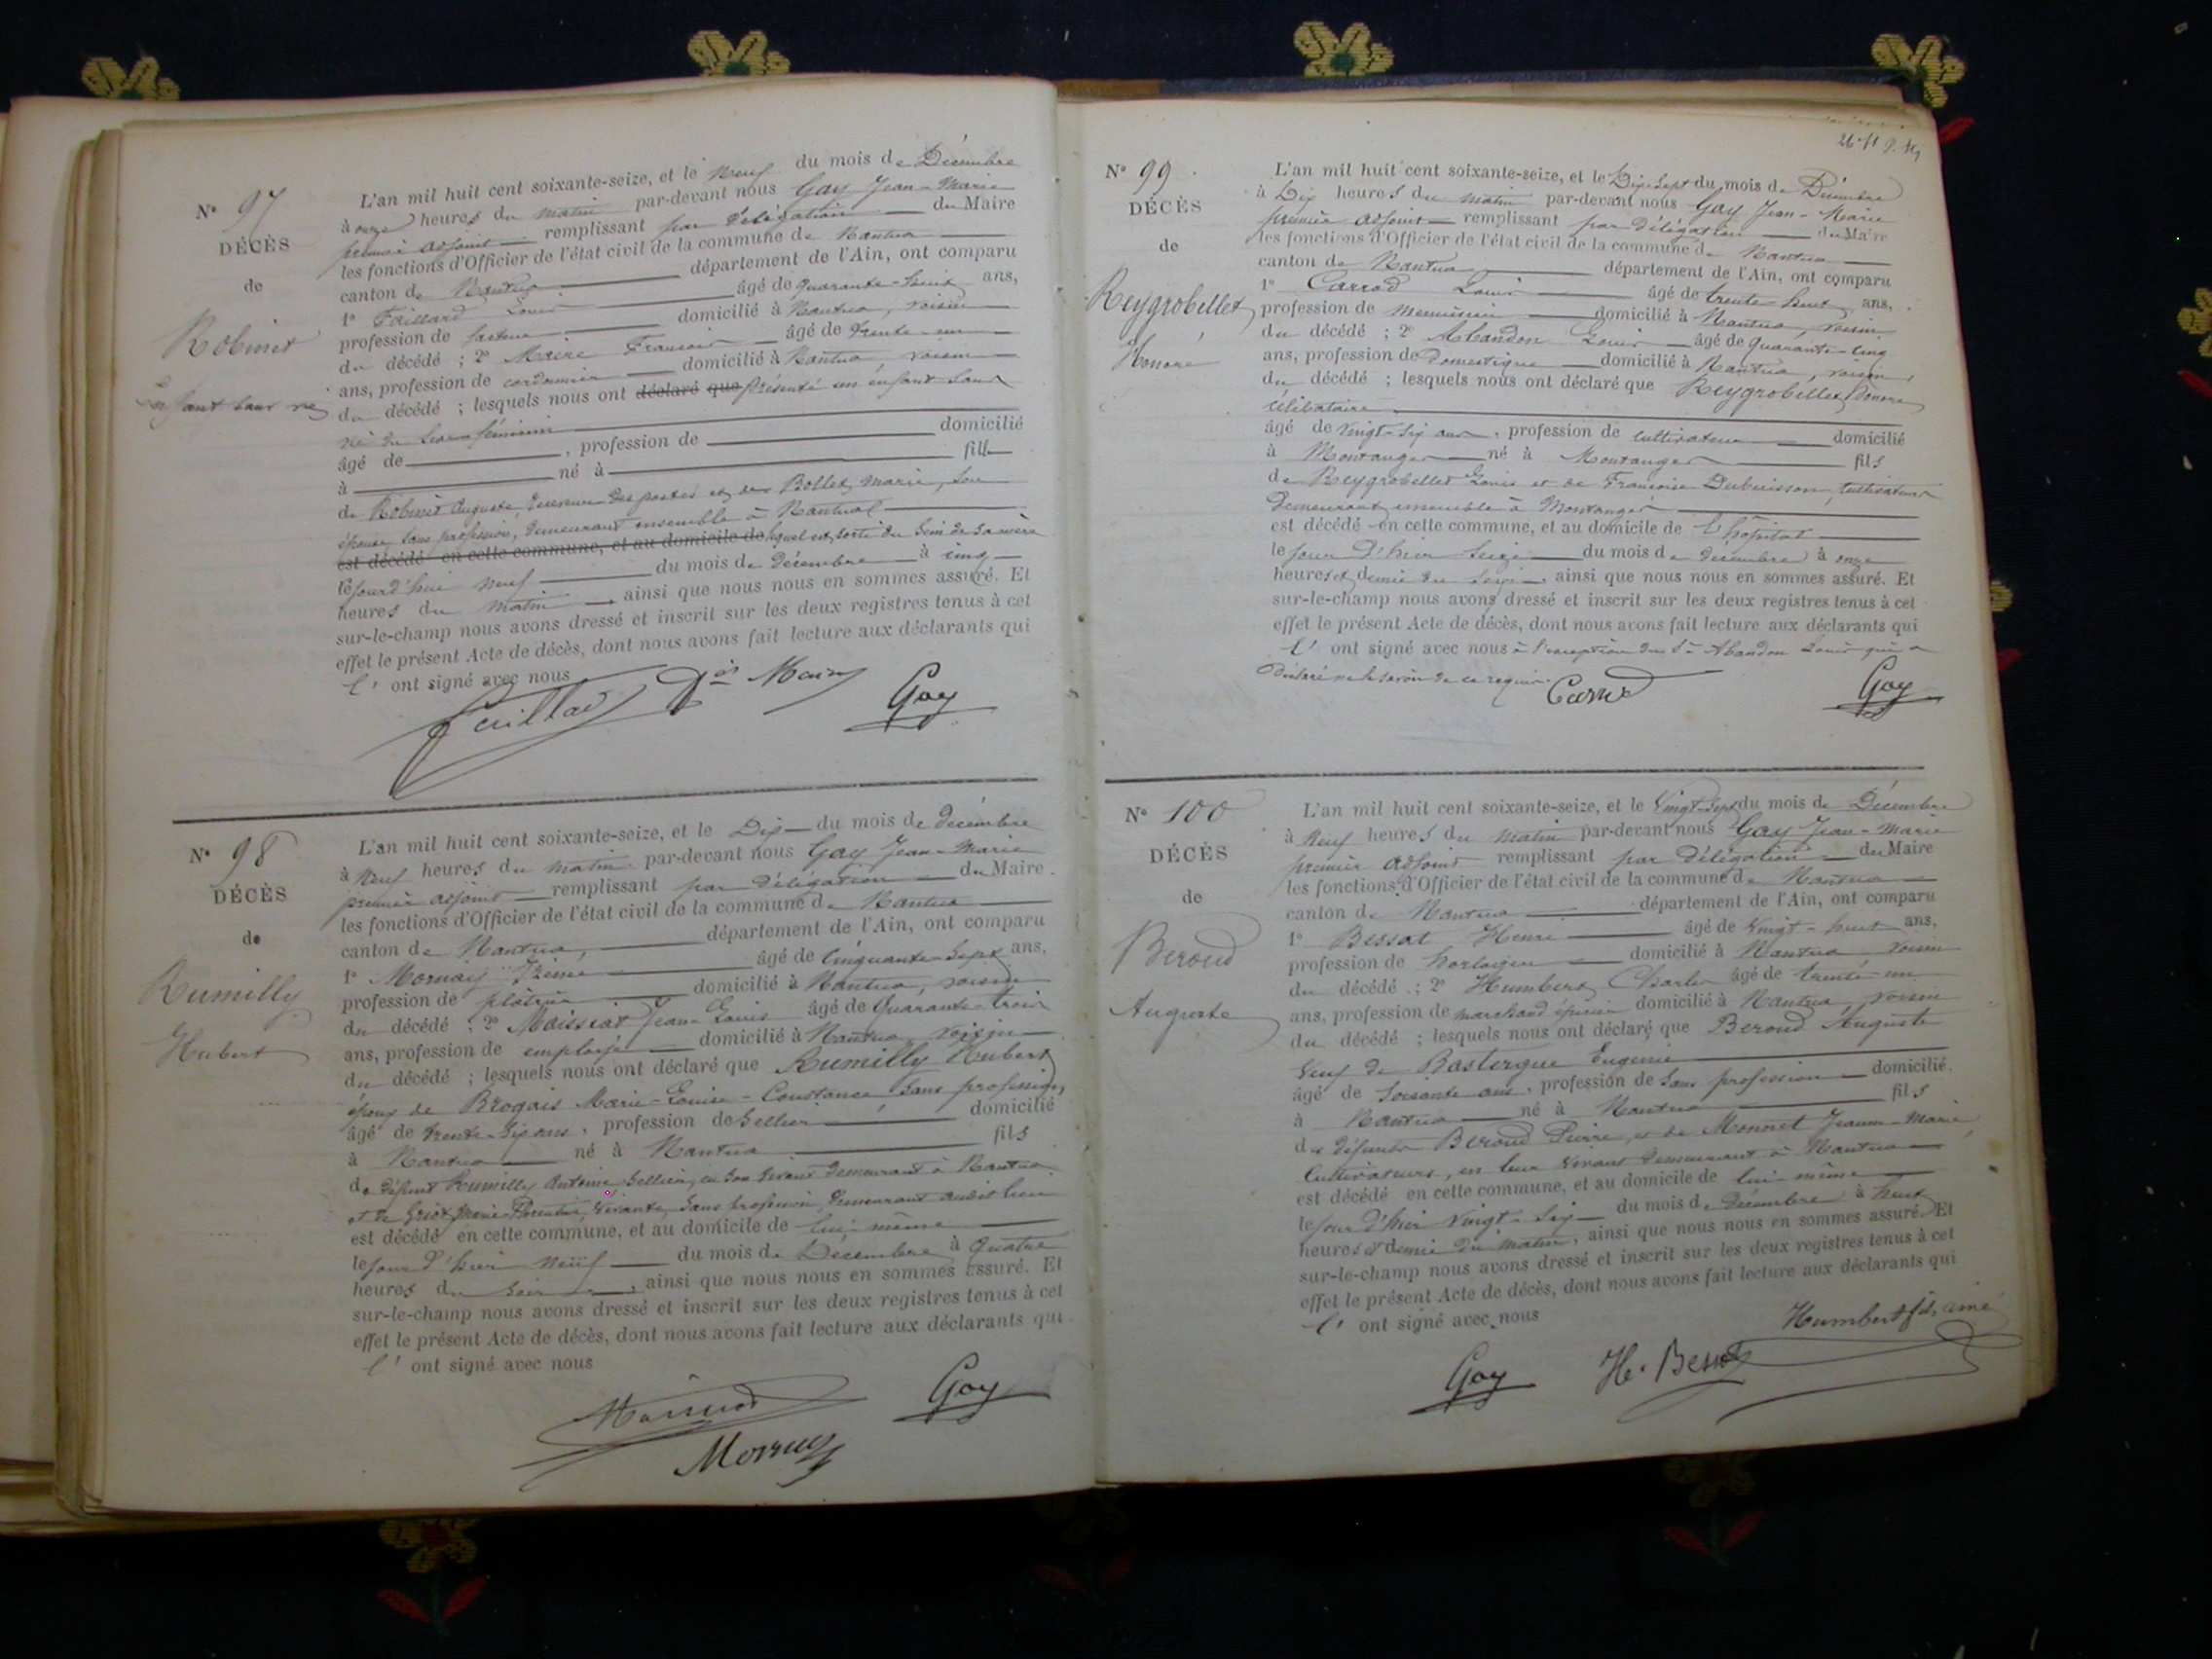 N° 97
DÉCÈS
de
Robinet
Enfant sans vie
L'an mil huit cent soixante-seize, et le Neuf du mois de Décembre
à onze heures du matin par-devant nous Gay Jean-Marie
premier adjoint remplissant par délégation du Maire
les fonctions d'Officier de l'état civil de la commune de Nantua
canton de Nantua département de l'Ain, ont comparu
1° Louis âgé de quarante-huit ans,
profession de facteur domicilié à Nantua, voisin
du décédé ; 2° Maire François âgé de trente-un
ans, profession de cordonnier domicilié à Nantua voisin
du décédé ; lesquels nous ont déclaré que présenté un enfant sans
vie du sexe féminin
âgé de , profession de domicilié
à né à fill
de Robinet Auguste, des postes et de Bollet Marie, son
épouse sans profession, demeurant ensemble à Nantua
est décédé en cette commune, et au domicile de lequel est sorti du sein de sa mère
le jourd'hui neuf du mois de décembre à cinq
heures du matin, ainsi que nous nous en sommes assuré. Et
sur-le-champ nous avons dressé et inscrit sur les deux registres tenus à cet
effet le présent Acte de décès, dont nous avons fait lecture aux déclarants qui
l' ont signé avec nous
Gay
N° 98
DÉCÈS
de
Rumilly
Hubert
L'an mil huit cent soixante-seize, et le Dix du mois de décembre
à Neuf heures du matin par-devant nous Gay Jean-Marie
premier adjoint remplissant par délégation du Maire
les fonctions d'Officier de l'état civil de la commune de Nantua
canton de Nantua, département de l'Ain, ont comparu
1° Mornay âgé de cinquante-sept ans,
profession de plâtrier domicilié à Nantua, voisin
du décédé ; 2° Moissiat Jean-Louis âgé de Quarante-trois
ans, profession de employé domicilié à Nantua voisin
du décédé ; lesquels nous ont déclaré que Rumilly Hubert
époux de Brogais Marie-Louise-Constance sans profession,
âgé de trente-six ans, profession de Sellier domicilié
à Nantua né à Nantua fils
de défunt Rumilly Antoine Sellier, en son vivant demeurant à Nantua
et de Marie vivante, sans profession, demeurant audit lieu
est décédé en cette commune, et au domicile de lui-même
le jour d'hier neuf du mois de Décembre à Quatre
heures du soir, ainsi que nous nous en sommes assuré. Et
sur-le-champ nous avons dressé et inscrit sur les deux registres tenus à cet
effet le présent Acte de décès, dont nous avons fait lecture aux déclarants qui
l' ont signé avec nous
Gay
Mornay
N° 99
DÉCÈS
de
Reygrobellet
Honoré
L'an mil huit cent soixante-seize, et le Dix-Sept du mois de Décembre
à Dix heures du matin par-devant nous Gay Jean-Marie
premier adjoint remplissant par délégation du Maire
les fonctions d'Officier de l'état civil de la commune de Nantua
canton de Nantua département de l'Ain, ont comparu
1° Carrod Louis âgé de trente huit ans,
profession de menuisier domicilié à Nantua, voisin
du décédé ; 2° Abandon Louis âgé de quarante-cinq
ans, profession de Domestique domicilié à Nantua, voisin
du décédé ; lesquels nous ont déclaré que Reygrobellet Honoré
célibataire
âgé de vingt-six ans, profession de cultivateur domicilié
à Montanges né à Montanges fils
de Reygrobellet Louis et de Françoise Dubuisson, cultivateurs
Demeurant ensemble à Montanges
est décédé en cette commune, et au domicile de L'hôpital
le jour d'hier Seize du mois de décembre à onze
heures et demie du soir, ainsi que nous nous en sommes assuré. Et
sur-le-champ nous avons dressé et inscrit sur les deux registres tenus à cet
effet le présent Acte de décès, dont nous avons fait lecture aux déclarants qui
l' ont signé avec nous à l'exception du Sr Abandon Louis qui a
Déclaré ne le savoir de ce requis.
Carrod
Gay
N° 100
DÉCÈS
de
Beroud
Auguste
L'an mil huit cent soixante-seize, et le Vingt-Sept du mois de Décembre
à Neuf heures du matin par-devant nous Gay Jean-Marie
premier adjoint remplissant par délégation du Maire
les fonctions d'Officier de l'état civil de la commune de Nantua
canton de Nantua département de l'Ain, ont comparu
1° Bessat Henri âgé de Vingt-huit ans,
profession de horloger domicilié à Nantua voisin
du décédé ; 2° Humbert Charles âgé de trente-un
ans, profession de marchand épicier domicilié à Nantua, voisin
du décédé ; lesquels nous ont déclaré que Beroud Auguste
Veuf de Bastergue Eugénie
âgé de Soixante ans, profession de Sans profession domicilié
à Nantua né à Nantua fils
de défunts Beroud Pierre, et de Monnet Jeanne-Marie,
Cultivateurs, en leur vivant demeurant à Nantua
est décédé en cette commune, et au domicile de lui-même
le jour d'hier Vingt-Six du mois de Décembre à huit
heures et demie du matin, ainsi que nous nous en sommes assuré. Et
sur-le-champ nous avons dressé et inscrit sur les deux registres tenus à cet
effet le présent Acte de décès, dont nous avons fait lecture aux déclarants qui
l' ont signé avec nous
Humbert fils, ainé
Gay
H. Bessat